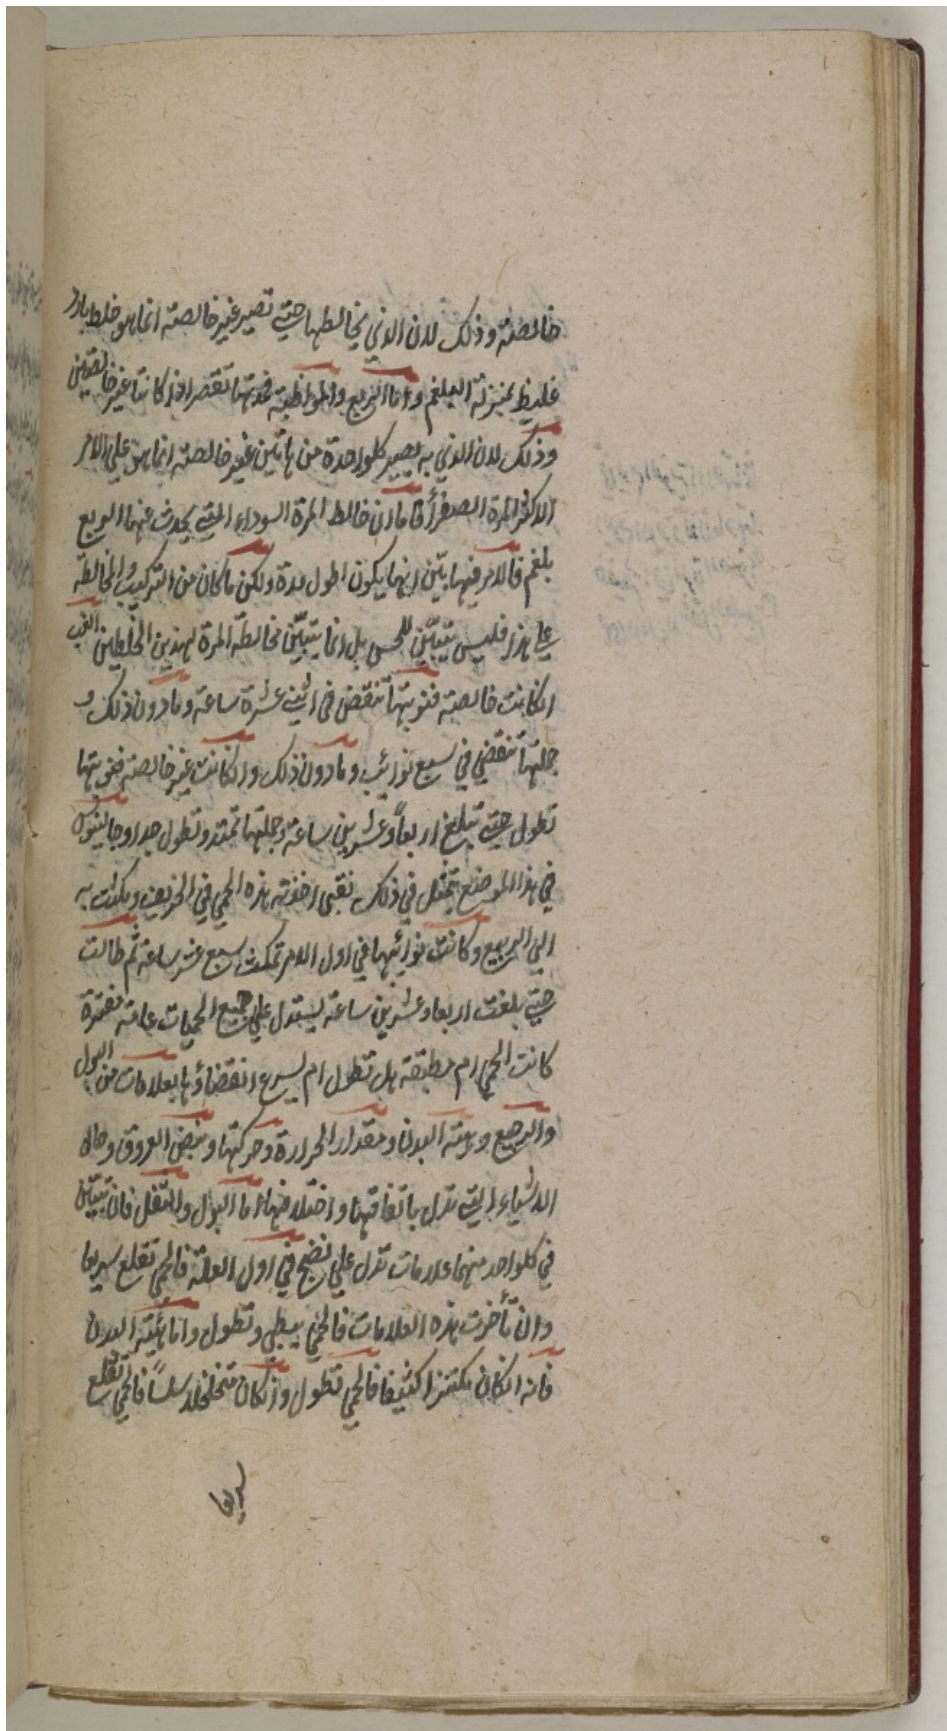 خالصته وذلك لان الذي يخالطها حتي تصير غير خالصته انما هو خلط بارد
غليظ بمنزلة البلغم واما الربع والمواظبة فمدتها تقصر اذا كانتا غير خالصتين
وذلك لان الذي به يصير كلواحدة من هاتين غير خالصته انما هو علي الامر
الاكثر المرة الصفرأ فاما ان خالط المرة السوداء التي يحدث عنها الربع
بلغم فالامر فيها بيّن انها يكون اطول مدة ولكن ما كان من التركيب والمخالطة
علي هذا فليس يتبيّن للحس بل انما يتبيّن مخالطة المرة لهذين الخلطين الغب
انكانت خالصته فنوبتها تنقضي في اثني عشرة ساعة وما دون ذلك و
جملتها تنقضي في سبع نوائب وما دون ذلك وانكانت غير خالصته فنوبتها
تطول حتي تبلغ اربعاً وعشرين ساعة وجملتها تمتد وتطول جدا وجالينوس
في هذا الموضع يتمثل في ذلك بفتى اخذته هذه الحمي في الخريف ومكثت به
الي الربيع وكانت نوائبها في اول الامر تمكث سبع عشر ساعة ثم طالت
حتي بلغت اربعا وعشرين ساعة ليستدل علي جميع الحميات عامة مفترة
كانت الحمي ام مطبقة هل تطول ام يسرع انقضاؤها بعلامات من البول
والرجيع وهيئته البدن ومقدار الحرارة وحركتها ونبض العروق وحال
الاشياء التي تدل باتفاقها واختلافها اما البول والثفل فان تبيّن
في كلواحد منهما علامات تدل علي نضج في اول العلة فالحمي تقلع سريعا
وان تأخرت هذه العلامات فالحمي يبطي وتطول واما هيئة البدن
فانه انكان مكتنزا كثيفا فالحمي تطول وانكان متخلخلا سلسًا فالحمي تقلع
سريعا